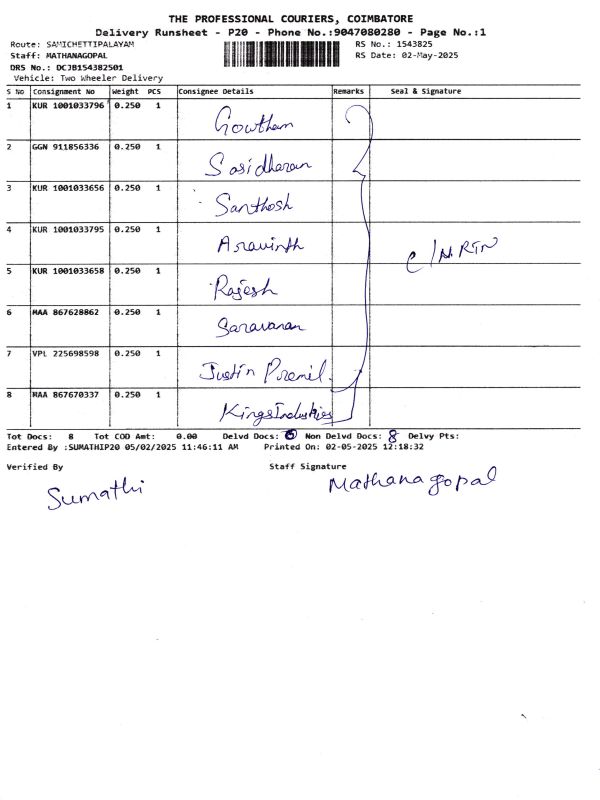 THE PROFESSIONAL COURIERS, COIMBATORE
Delivery Runsheet - P20 - Phone No.:9047080280 - Page No.:1
Route: SAMICHETTIPALAYAM RS No.: 1543825
Staff: MATHANAGOPAL RS Date: 02-May-2025
DRS No.: DCJB154382501
Vehicle: Two Wheeler Delivery
S No Consignment No Weight PCS Consignee Details Remarks Seal & Signature
1 KUR 1001033796 0.250 1 Gowtham
2 GGN 911856336 0.250 1 Sasidharan
3 KUR 1001033656 0.250 1 Santhosh
4 KUR 1001033795 0.250 1 Aravinth
5 KUR 1001033658 0.250 1 Rajesh
6 MAA 867628862 0.250 1 Saravanan
7 VPL 225698598 0.250 1 Justin Premil.
8 MAA 867670337 0.250 1 Kings Industries
Tot Docs: 8 Tot COD Amt: 0.00 Delvd Docs: 0 Non Delvd Docs: 8 Delvy Pts:
Entered By :SUMATHIP20 05/02/2025 11:46:11 AM Printed On: 02-05-2025 12:18:32
Verified By Staff Signature
Sumathi Mathanagopal